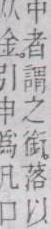 中者謂之銜落以
从金引申爲凡口